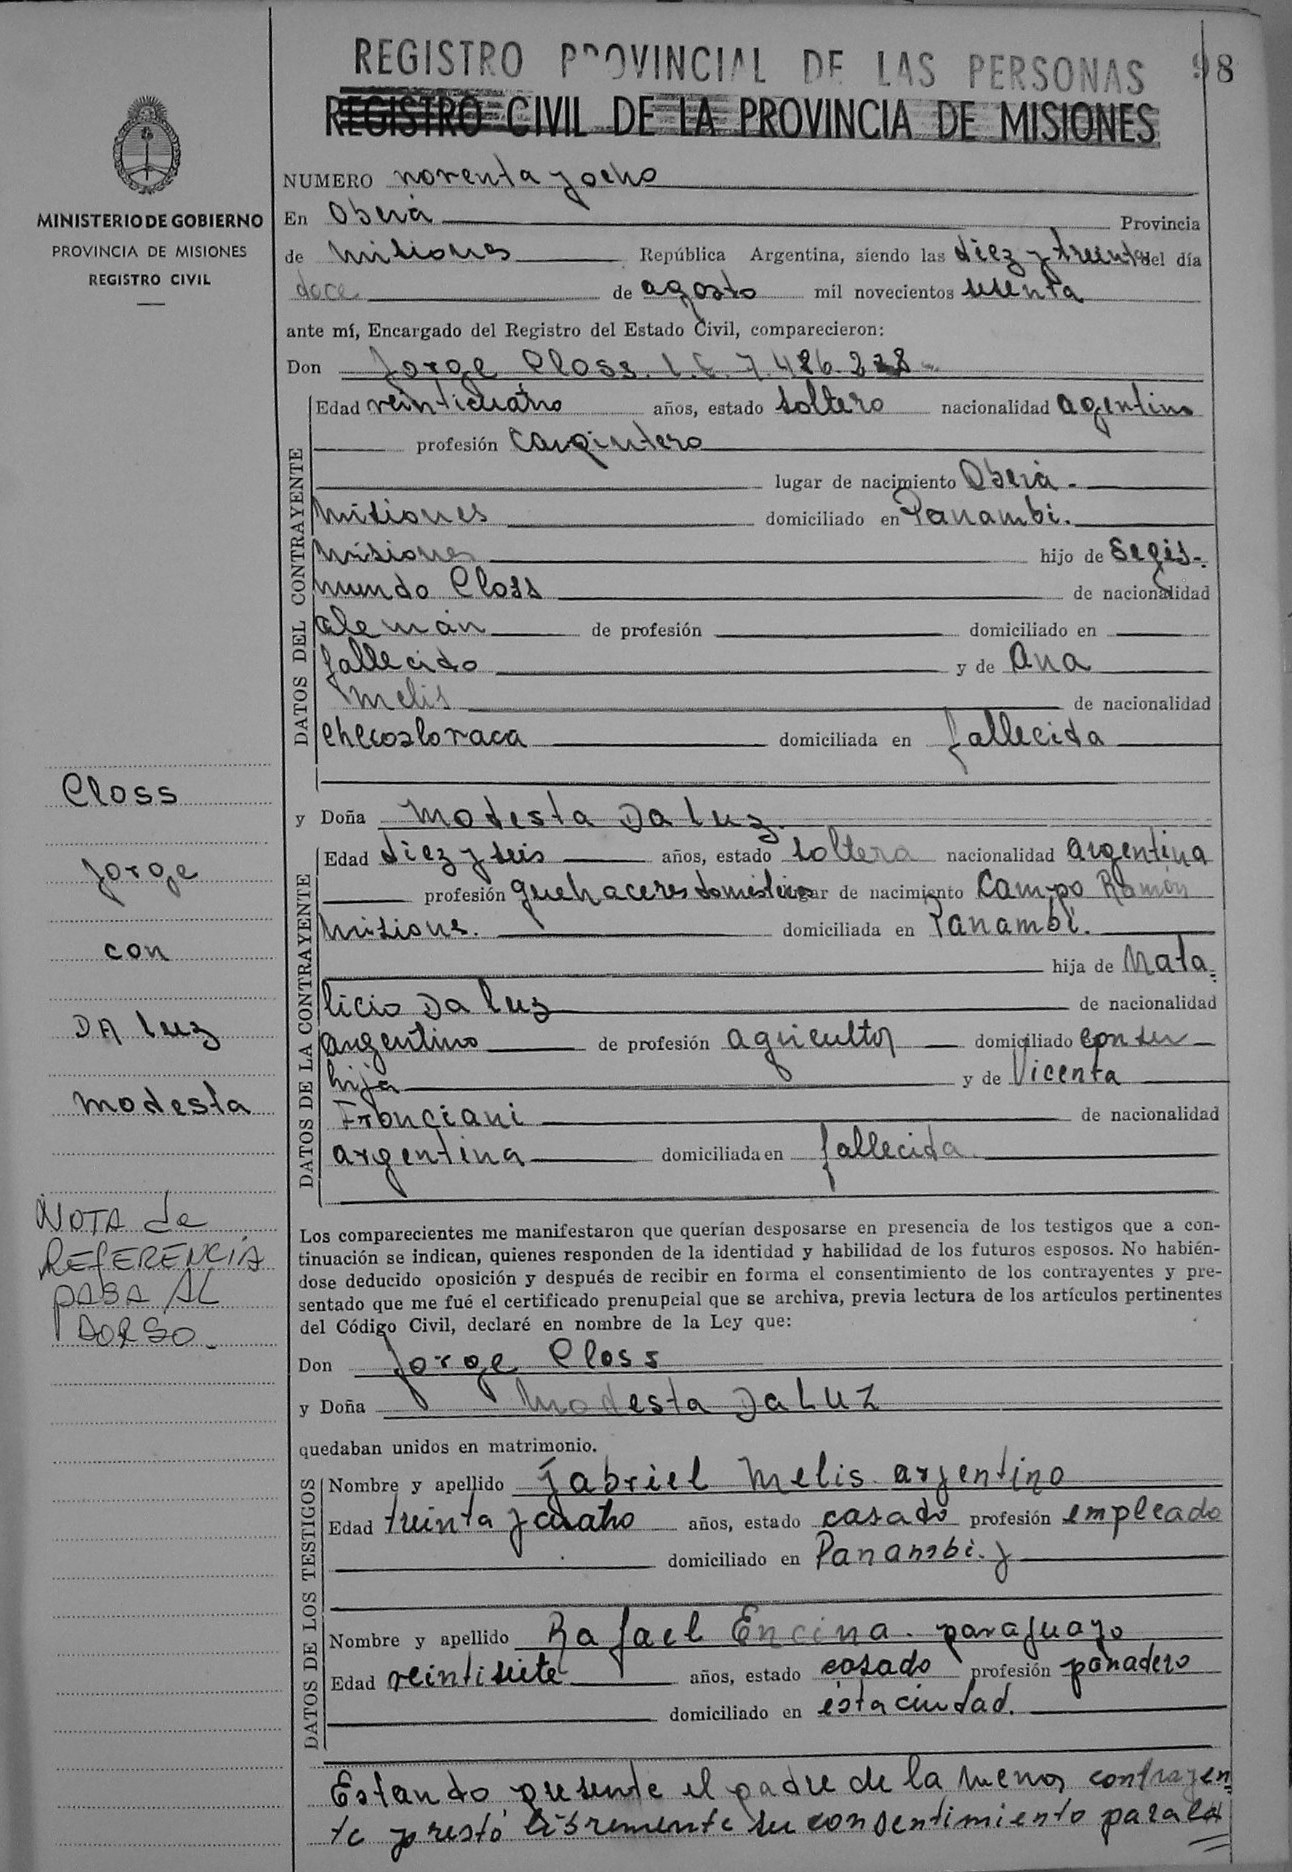 REGISTRO PROVINCIAL DE LAS PERSONAS
98
REGISTRO CIVIL DE LA PROVINCIA DE MISIONES
MINISTERIO DE GOBIERNO
PROVINCIA DE MISIONES
REGISTRO CIVIL
NUMERO noventa y ocho
En Oberá Provincia
de Misiones República Argentina, siendo las diez y treinta del día
doce de agosto mil novecientos sesenta
ante mí, Encargado del Registro del Estado Civil, comparecieron:
Don Jorge Closs. L.E. 7.486.228
DATOS DEL CONTRAYENTE
Edad veinticuatro años, estado soltero nacionalidad agentino
profesión carpintero
lugar de nacimiento Oberá.
Misiones domiciliado en Panambí.
Misiones hijo de Segis-
mundo Closs de nacionalidad
alemán de profesión domiciliado en
fallecido y de Ana
Melis de nacionalidad
checosloraca domiciliada en fallecida
Closs
Jorge
con
DA luz
Modesta
NOTA de
REFERENCIA
PASA AL
DORSO.
y Doña Modesta Da luz.
DATOS DE LA CONTRAYENTE
Edad diez y seis años, estado soltera nacionalidad argentina
profesión quehaceres domésticos lugar de nacimiento Campo Ramón
Misiones. domiciliada en Panambí.
hija de Nata-
licio Da luz de nacionalidad
argentino de profesión agricultor domiciliado con su
hija y de Vicenta
Fronciani de nacionalidad
argentina domiciliada en fallecida.
Los comparecientes me manifestaron que querían desposarse en presencia de los testigos que a con-
tinuación se indican, quienes responden de la identidad y habilidad de los futuros esposos. No habién-
dose deducido oposición y después de recibir en forma el consentimiento de los contrayentes y pre-
sentado que me fué el certificado prenupcial que se archiva, previa lectura de los artículos pertinentes
del Código Civil, declaré en nombre de la Ley que:
Don Jorge Closs
y Doña Modesta Da LUZ
quedaban unidos en matrimonio.
DATOS DE LOS TESTIGOS
Nombre y apellido Gabriel Melis. argentino
Edad treinta y cuatro años, estado casado profesión empleado
domiciliado en Panambí. y
Nombre y apellido Rafael Encina. paraguayo
Edad veintisiete años, estado casado profesión panadero
domiciliado en ésta ciudad.
Estando presente el padre de la menor contrayen-
te prestó libremente su consentimiento para la